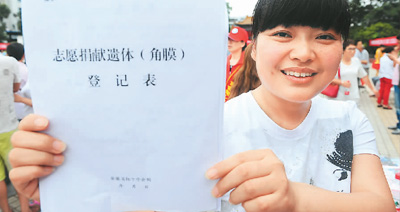 志愿捐献遗体（角膜）
登记表